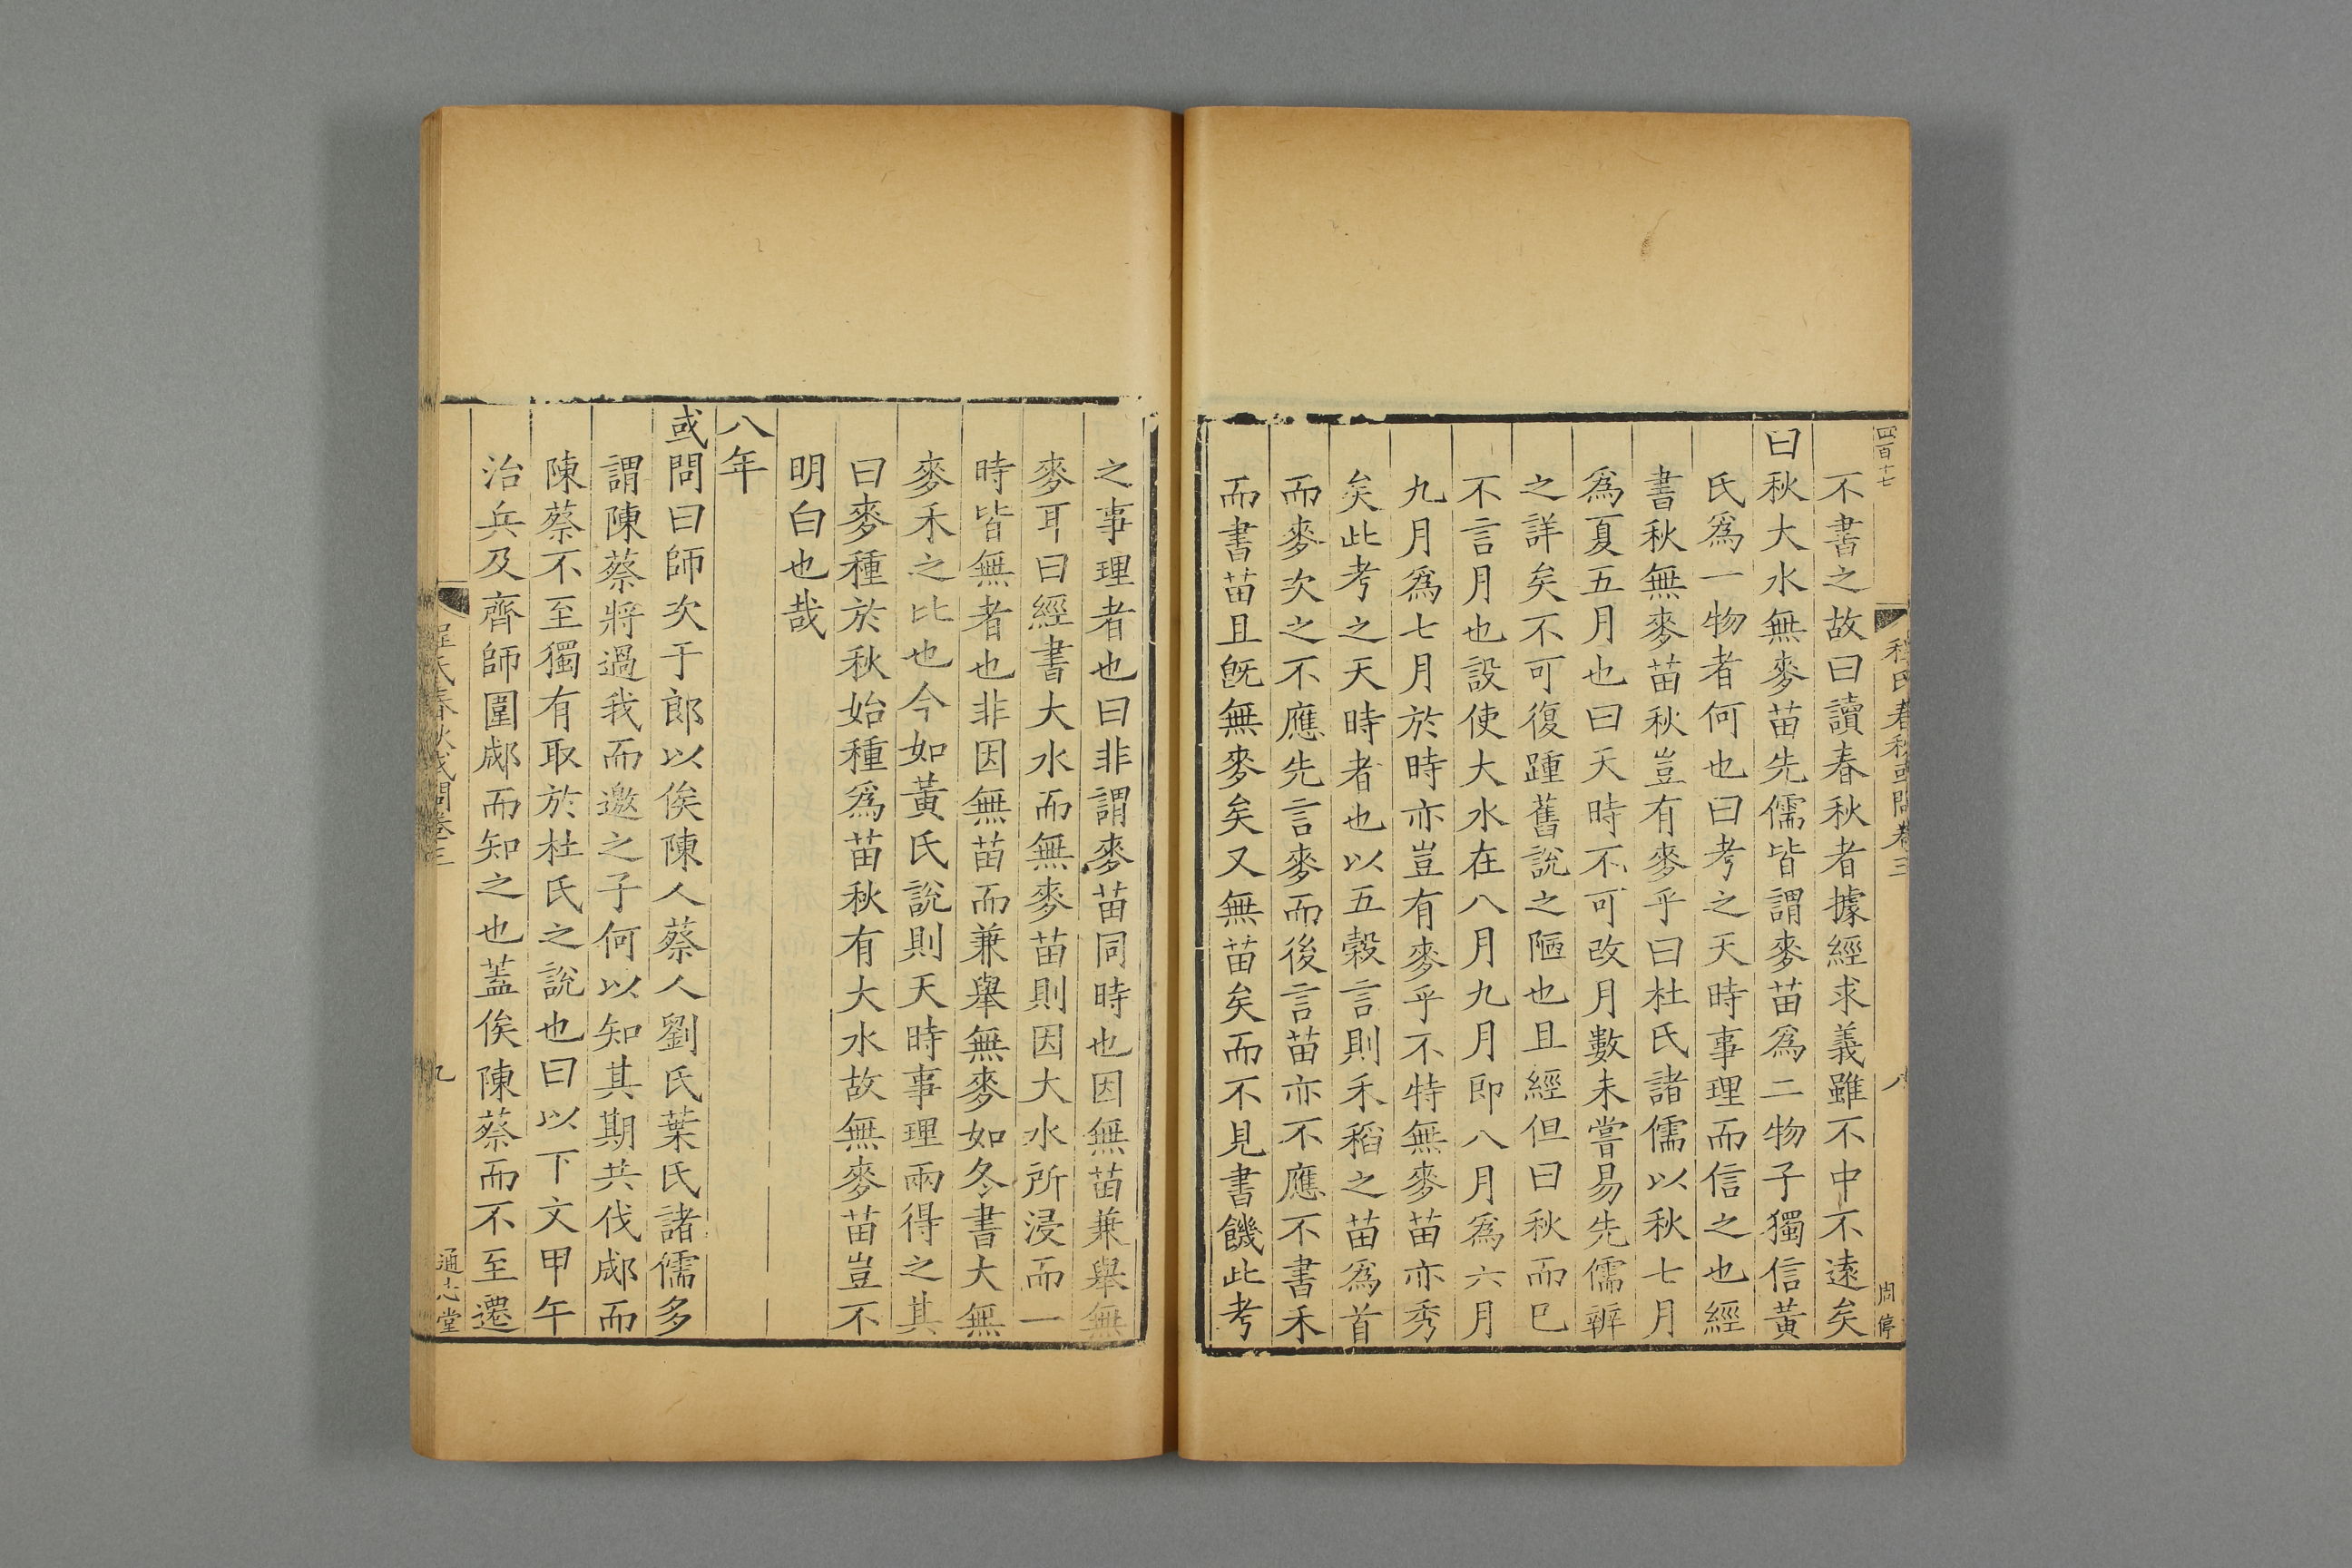 四百十七
程氏春秋或問卷三
八
周停
不書之故曰讀春秋者據經求義雖不中不遠矣
曰秋大水無麥苗先儒皆謂麥苗爲二物子獨信黃
氏爲一物者何也曰考之天時事理而信之也經
書秋無麥苗秋豈有麥乎曰杜氏諸儒以秋七月
爲夏五月也曰天時不可改月數未嘗易先儒辨
之詳矣不可復踵舊說之陋也且經但曰秋而已
不言月也設使大水在八月九月即八月爲六月
九月爲七月於時亦豈有麥乎不特無麥苗亦秀
矣此考之天時者也以五穀言則禾稻之苗爲首
而麥次之不應先言麥而後言苗亦不應不書禾
而書苗且旣無麥矣又無苗矣而不見書饑此考
之事理者也曰非謂麥苗同時也因無苗兼舉無
麥耳曰經書大水而無麥苗則因大水所浸而一
時皆無者也非因無苗而兼舉無麥如冬書大無
麥禾之比也今如黃氏說則天時事理兩得之其
曰麥種於秋始種爲苗秋有大水故無麥苗豈不
明白也哉
八年
或問曰師次于郎以俟陳人蔡人劉氏葉氏諸儒多
謂陳蔡將過我而邀之子何以知其期共伐郕而
陳蔡不至獨有取於杜氏之說也曰以下文甲午
治兵及齊師圍郕而知之也蓋俟陳蔡而不至遷
程氏春秋或問卷三
九
通志堂